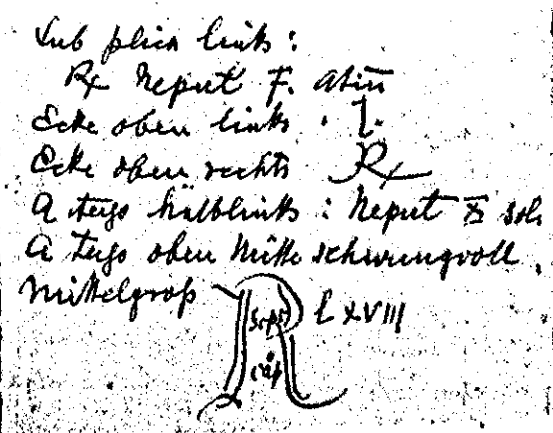 Sub plica links:
Rx Neput F. Atin
Ecke oben links · 1.
Ecke oben rechts Rx
A tergo halblinks: Neput X sol
A tergo oben Mitte schwungvoll,
mittelgroß R L XVIII
Script
cap